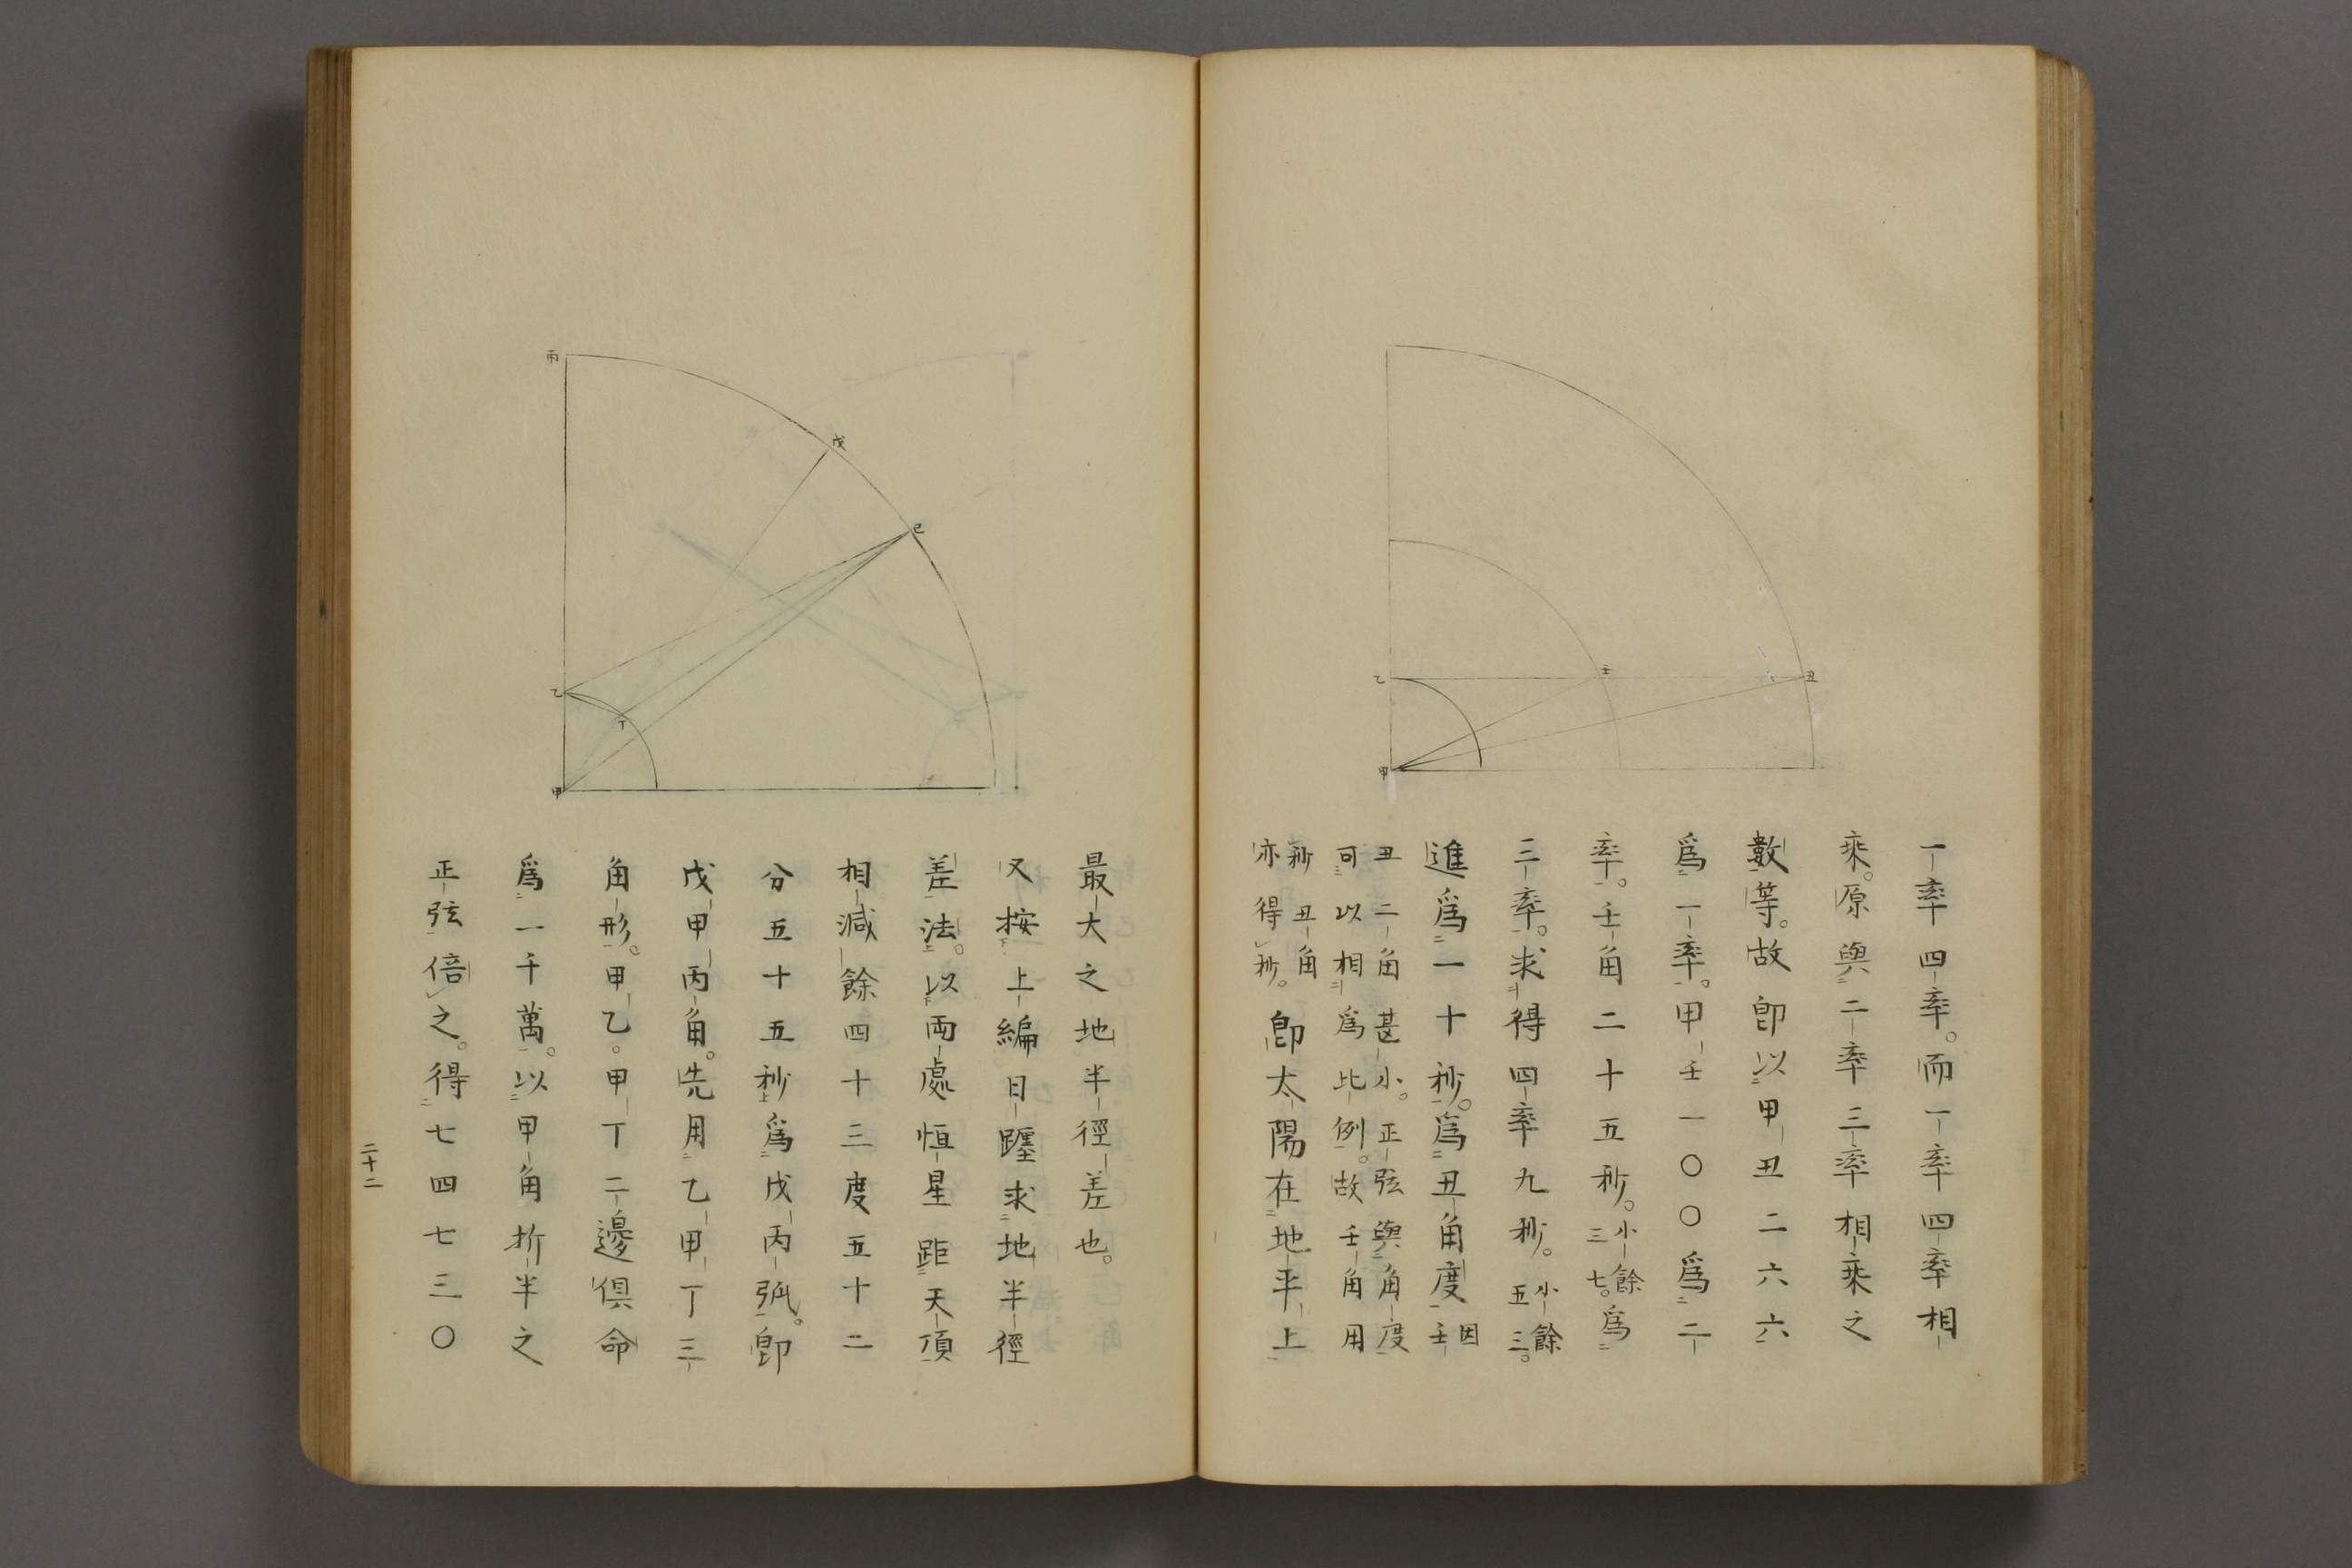 一率四率。而一率四率相
乘。原與二率三率相乘之
數等。故卽以甲丑二六六
爲一率。甲壬一〇〇爲二
率。壬角二十五秒。小餘三七。爲
三率。求得四率九秒。小餘五三。
進爲一十秒。爲丑角度因壬
丑二角甚小。正弦與角度
可以相爲比例。故壬角用
秒丑角
亦得秒。卽太陽在地平上
乙
壬
丑
甲
最大之地半徑差也。
又按上編日躔求地半徑
差法。以兩處恒星距天頂
相減餘四十三度五十二
分五十五秒爲戊丙弧。卽
戊甲丙角。先用乙甲丁三
角形。甲乙。甲丁二邊俱命
爲一千萬。以甲角折半之
正弦倍之。得七四七三〇
丙
戊
己
乙
丁
甲
二十二